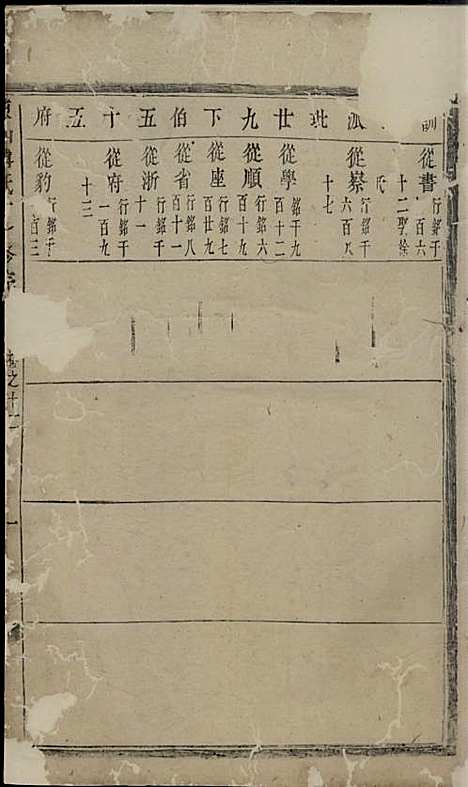 訓
從書 行銘千
百六
十二聖徐
氏
派
從察 行銘千
六百八
十七
廿
從學 行銘千九
百十二
九
從順 行銘六
百十九
下
從座 行銘七
百廿九
伯
從省 行銘八
百十一
五
從浙 行銘千
十一
十
從府 行銘千
一百九
十三
五
府
從豹 行銘千
百三